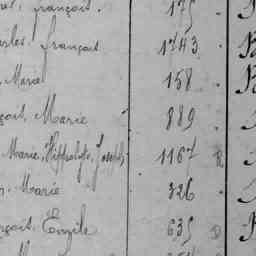 françois. 175
françois 1743
Marie 158
Marie 889
Marie, Hippolyte, Joseph 1167 R
Marie 326
Emile 635 D